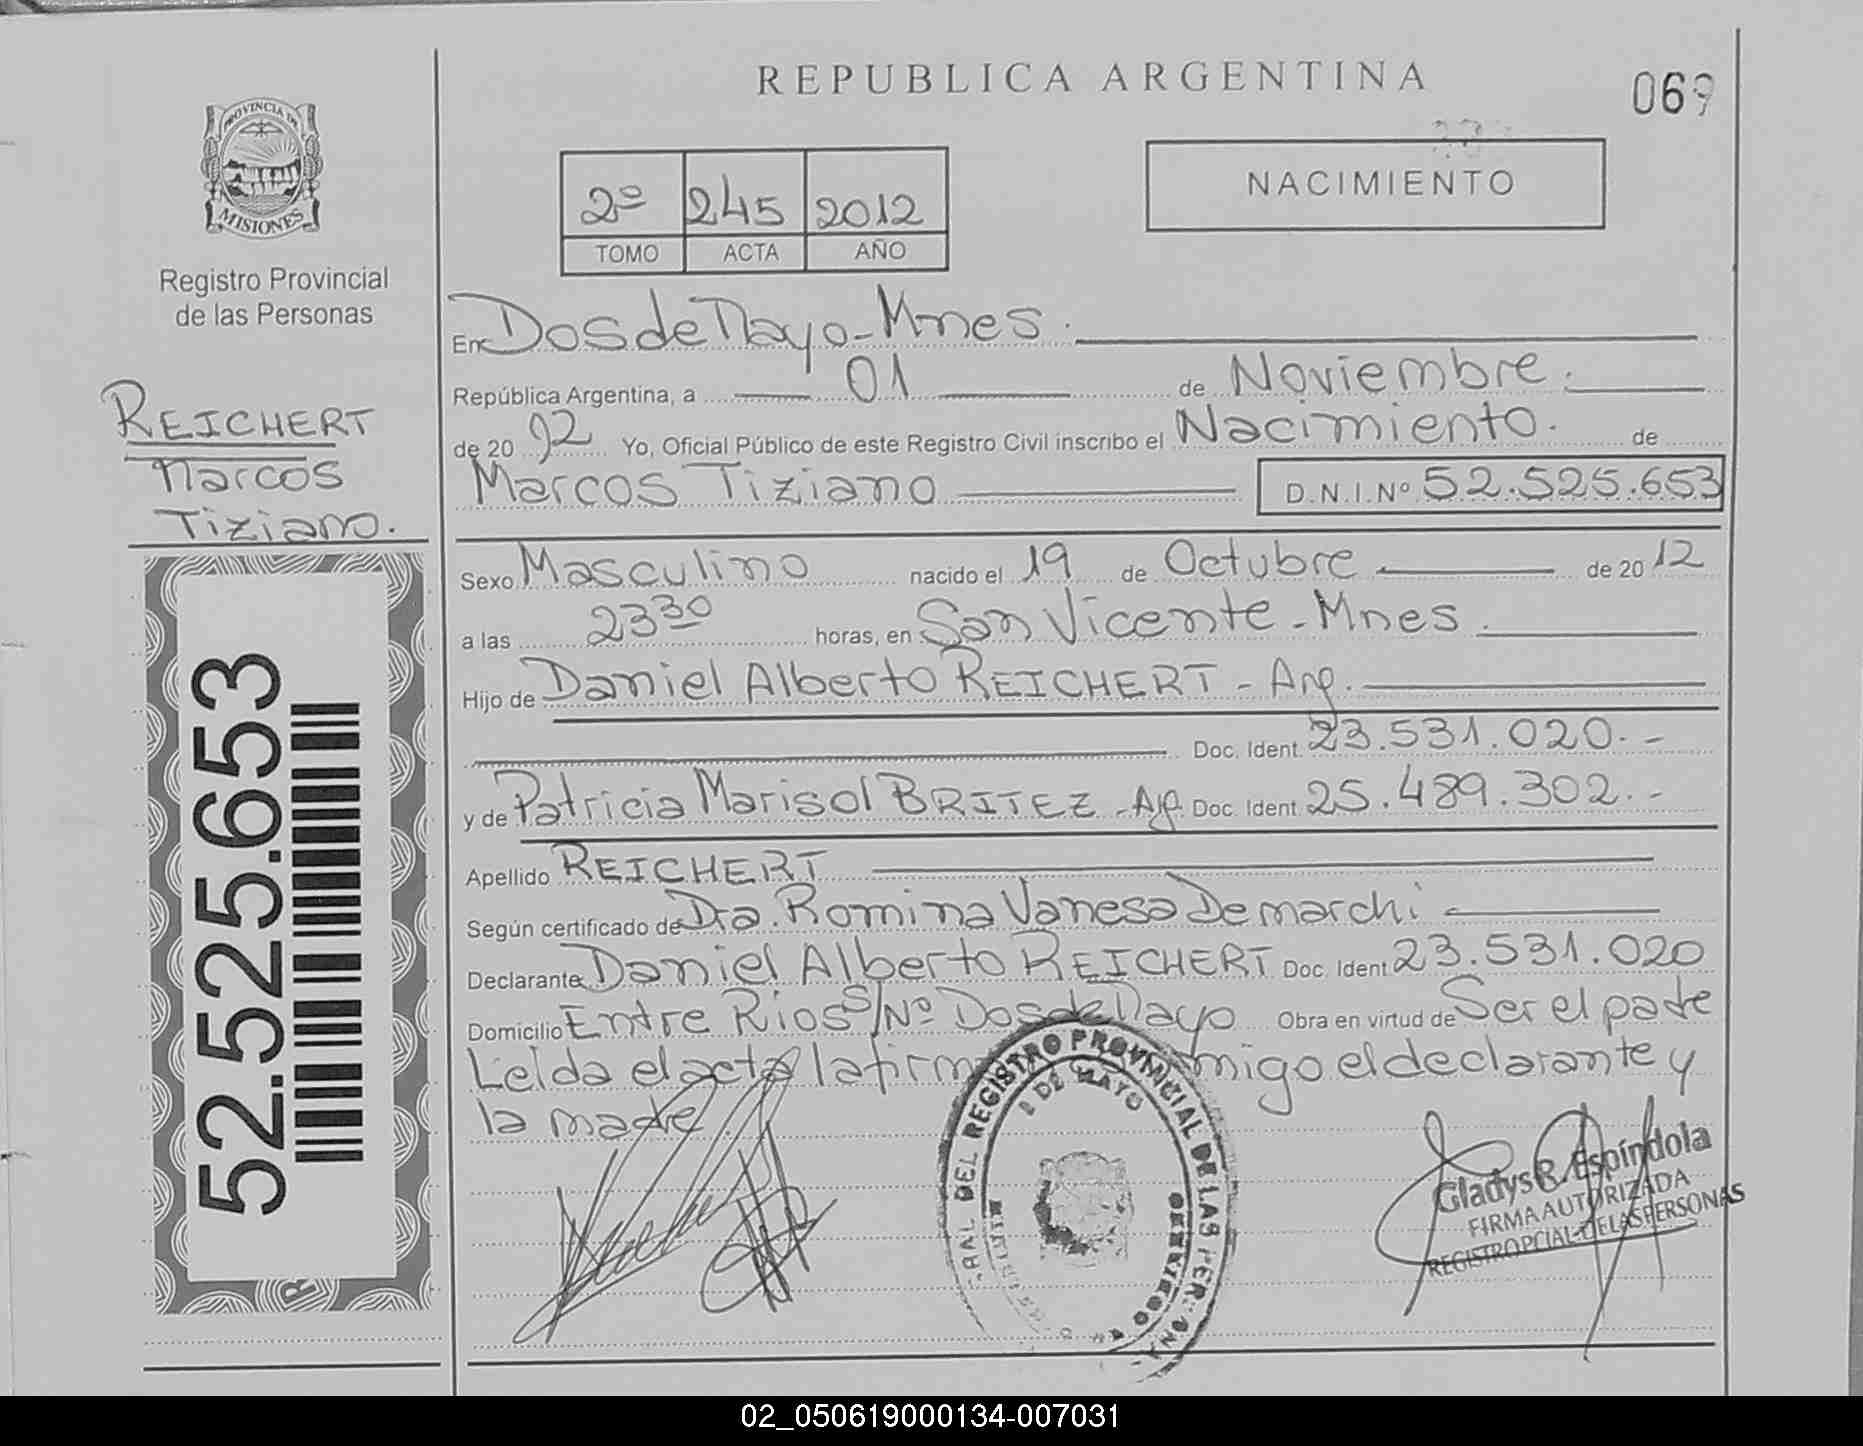 REPUBLICA ARGENTINA
069
PROVINCIA DE
MISIONES
Registro Provincial
de las Personas
2º 245 2012
TOMO ACTA AÑO
NACIMIENTO
REICHERT
Marcos
Tiziano.
52.525.653
En Dos de Mayo - Mnes.
República Argentina, a 01 de Noviembre.
de 20 12 Yo, Oficial Público de este Registro Civil inscribo el Nacimiento. de
Marcos Tiziano D.N.I.Nº 52.525.653
Sexo Masculino nacido el 19 de Octubre de 20 12
a las 23 30 horas, en San Vicente - Mnes.
Hijo de Daniel Alberto REICHERT - Arg.
Doc. Ident. 23.531.020.-
y de Patricia Marisol BRITEZ - Arg. Doc. Ident. 25.489.302.-
Apellido REICHERT
Según certificado de Dra. Romina Vanesa Demarchi
Declarante Daniel Alberto REICHERT Doc. Ident. 23.531.020
Domicilio Entre Rios S/Nº Dos de Mayo Obra en virtud de Ser el padre
Leida el acta la firma migo el declarante y
la madre
DEL REGISTRO PROVINCIAL DE LAS
DE MAYO
Gladys R. Espíndola
FIRMA AUTORIZADA
REGISTRO PCIAL. DE LAS PERSONAS
02_050619000134-007031